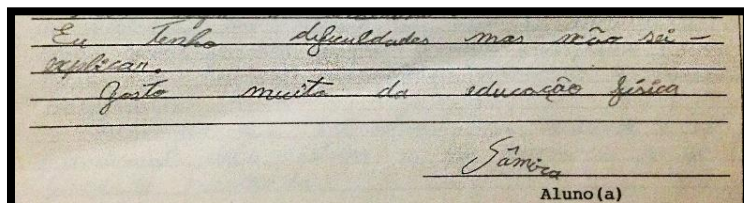 Eu Tenho dificuldades mas não sei -
explicar.
Gosto muito da educação física
Sâmira
Aluno(a)